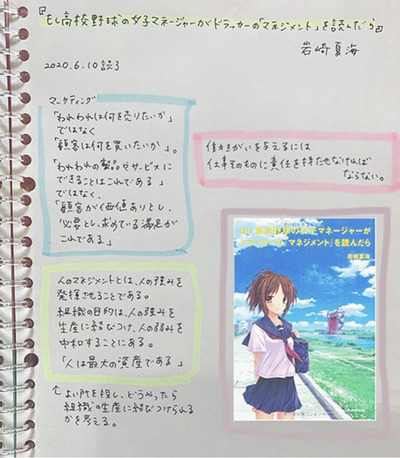 『もし高校野球の女子マネージャーがドラッカーの「マネジメント」を読んだら』
岩崎夏海
2020.6.10読了
マーケティング
「われわれは何を売りたいか」
ではなく
「顧客は何を買いたいか」。
「われわれの製品やサービスに
できることはこれである」
ではなく、
「顧客が価値ありとし、
必要とし、求めている満足が
これである」
働きがいを与えるには
仕事そのものに責任を持たせなければ
ならない。
人のマネジメントとは、人の強みを
発揮させることである。
組織の目的は、人の強みを
生産に結びつけ、人の弱みを
中和することにある。
「人は最大の資産である」
↑よい所を探し、どうやったら
組織の生産に結びつけられる
かを考える。
もし高校野球の女子マネージャーが
ドラッカーの『マネジメント』を読んだら
岩崎夏海